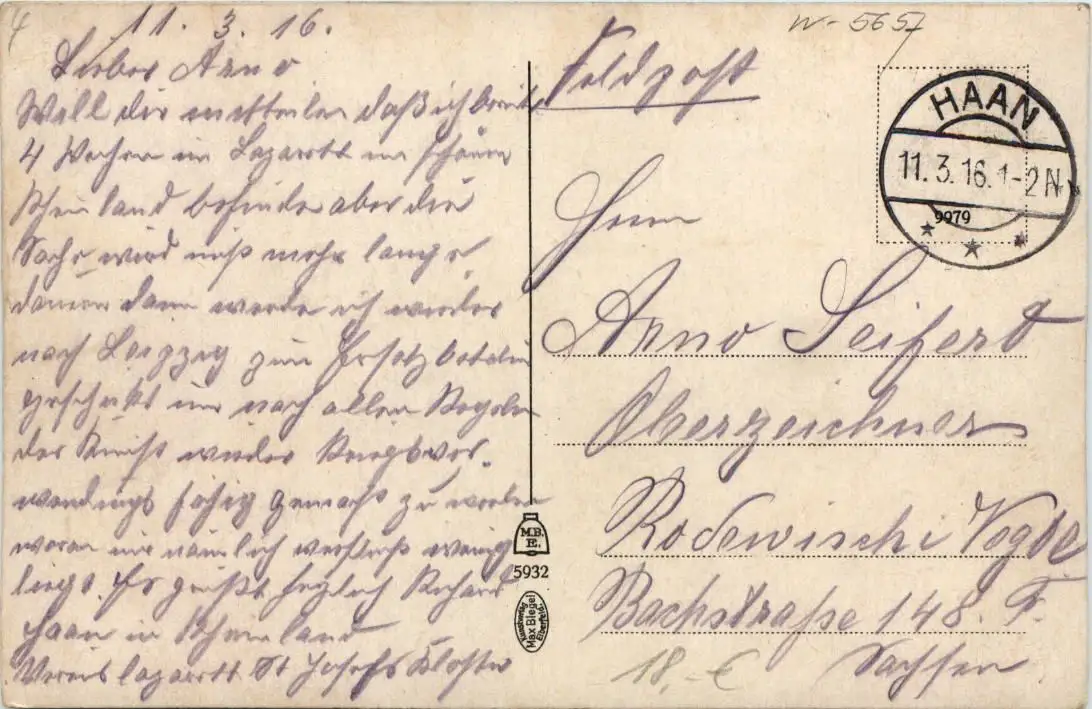 11. 3. 16.
Lieber Arno
Will dir mitteilen daß ich bereits
4 Wochen im Lazarett im schönen
Rheinland befinde aber die
Sache wird nicht mehr lange
dauern dann werde ich wieder
nach Leipzig zum Ersatzbatallion
geschickt um nach allen Regeln
der Kunst wieder Kriegsver-
wendungs fähig gemacht zu werden
woran mir nämlich verflucht wenig
liegt. Es grüßt herzlich Richard
Haan in Rheinland
Vereinslazarett St Josefs Kloster
M.B.
E.
5932
Kunstverlag
Max Biegel
Elberfeld.
W-5657
Feldpost
HAAN
11.3.16.1-2N
9979
Herrn
Arno Seifert
Oberzeichner
Rodewisch i Vogtl
Bachstraße 148. F.
Sachsen
18,- €